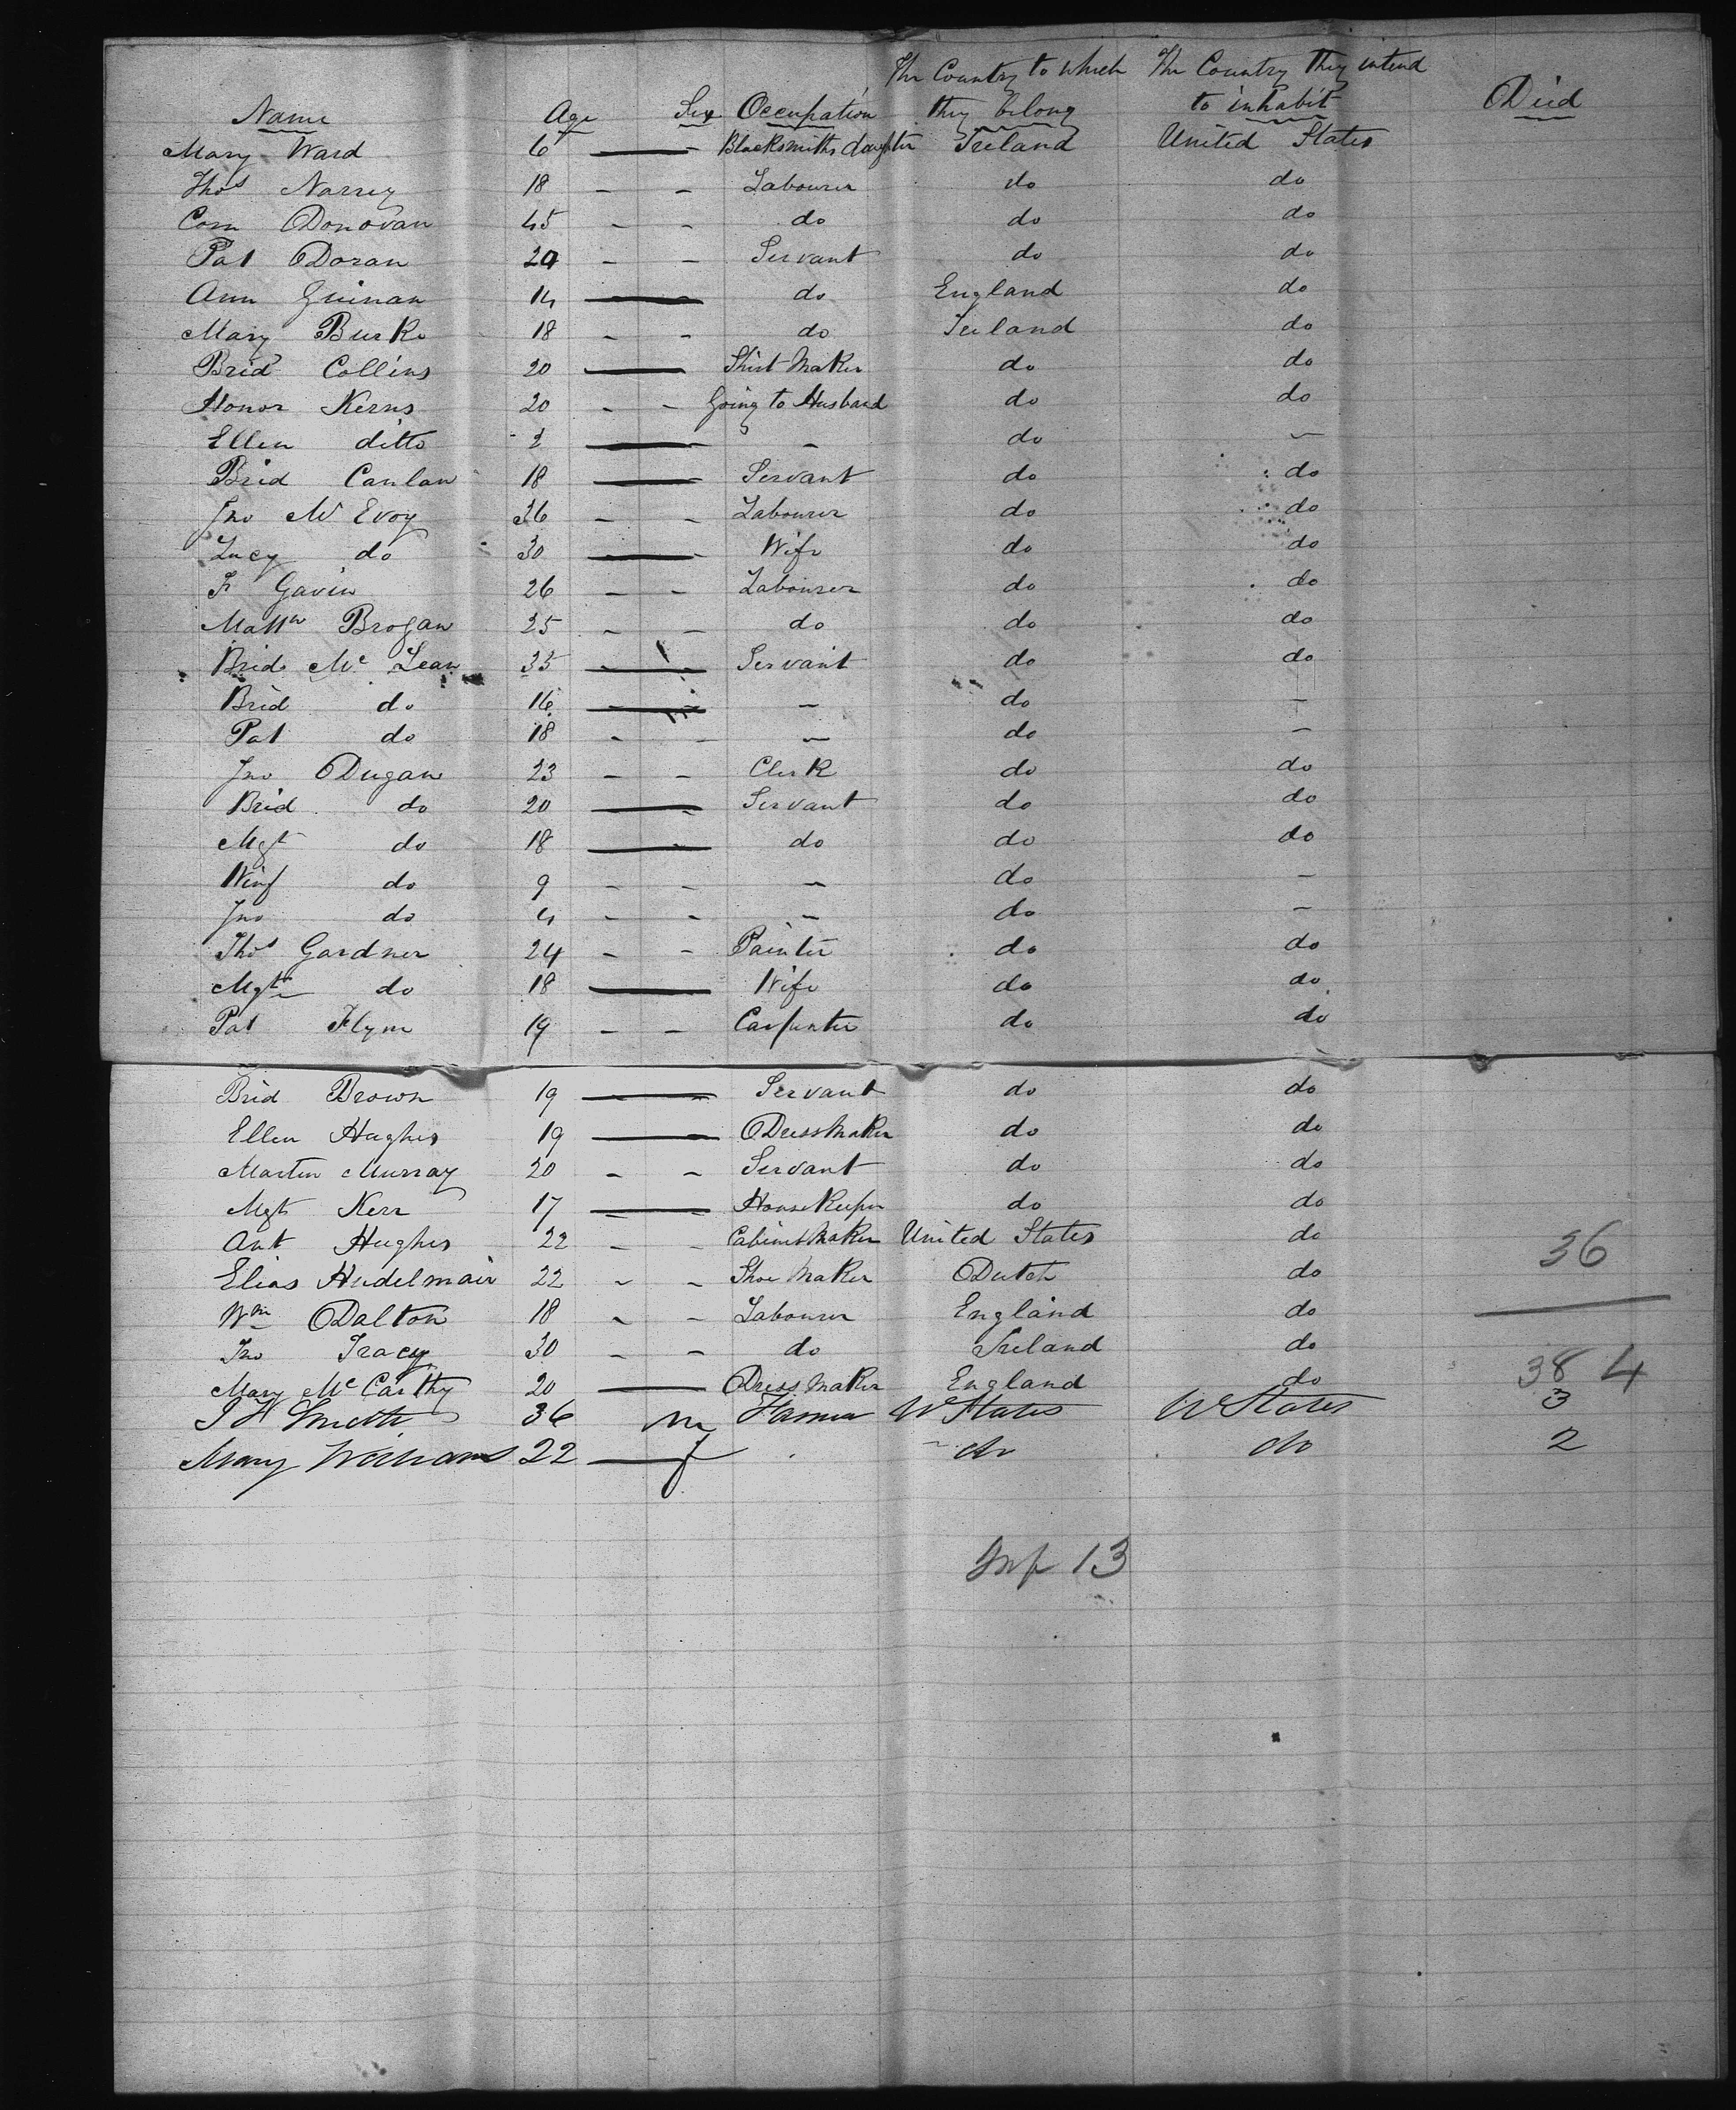 The Country to which The Country they intend
Name Age Sex Occupation they belong to inhabit Died
Mary Ward 6 — Blacksmiths daughter Ireland United States
Thos Narrey 18 - - Labourer do do
Corn Donovan 45 - - do do do
Pat Doran 20 - - Servant do do
Ann Guinan 14 — do England do
Mary Burke 18 - - do Ireland do
Brid Collins 20 — Shirt Maker do do
Honor Kerns 20 - - Going to Husband do do
Ellen ditto 2 — - do -
Brid Canlan 18 — Servant do do
Jno McEvoy 36 - - Labourer do do
Lucy do 30 — Wife do do
F Gavin 26 - - Labourer do do
Mattw Brogan 25 - - do do do
Brid Mc Lean 35 — Servant do do
Brid do 16 — - do -
Pat do 18 - - - do -
Jno Dugan 23 - - Clerk do do
Brid do 20 — Servant do do
Mgt do 18 — do do do
Winf do 9 - - - do -
Jno do 4 - - - do -
Thos Gardner 24 - - Painter do do
Mgt do 18 — Wife do do
Pat Flynn 19 - - Carpenter do do
Brid Brown 19 — Servant do do
Ellen Hughes 19 — Dressmaker do do
Martin Murray 20 - - Servant do do
Mgt Kerr 17 — HouseKeeper do do
Ant Hughes 22 - - Cabinet Maker United States do
36
Elias Hudelmair 22 - - Shoe Maker Dutch do
Wm Dalton 18 - - Labourer England do
Jno Tracy 30 - - do Ireland do
Mary McCarthy 20 — Dress Maker England do 38 4
J H Smith 36 m Farmer U States U States 3
Mary Williams 22 — f do do 2
Inf 13